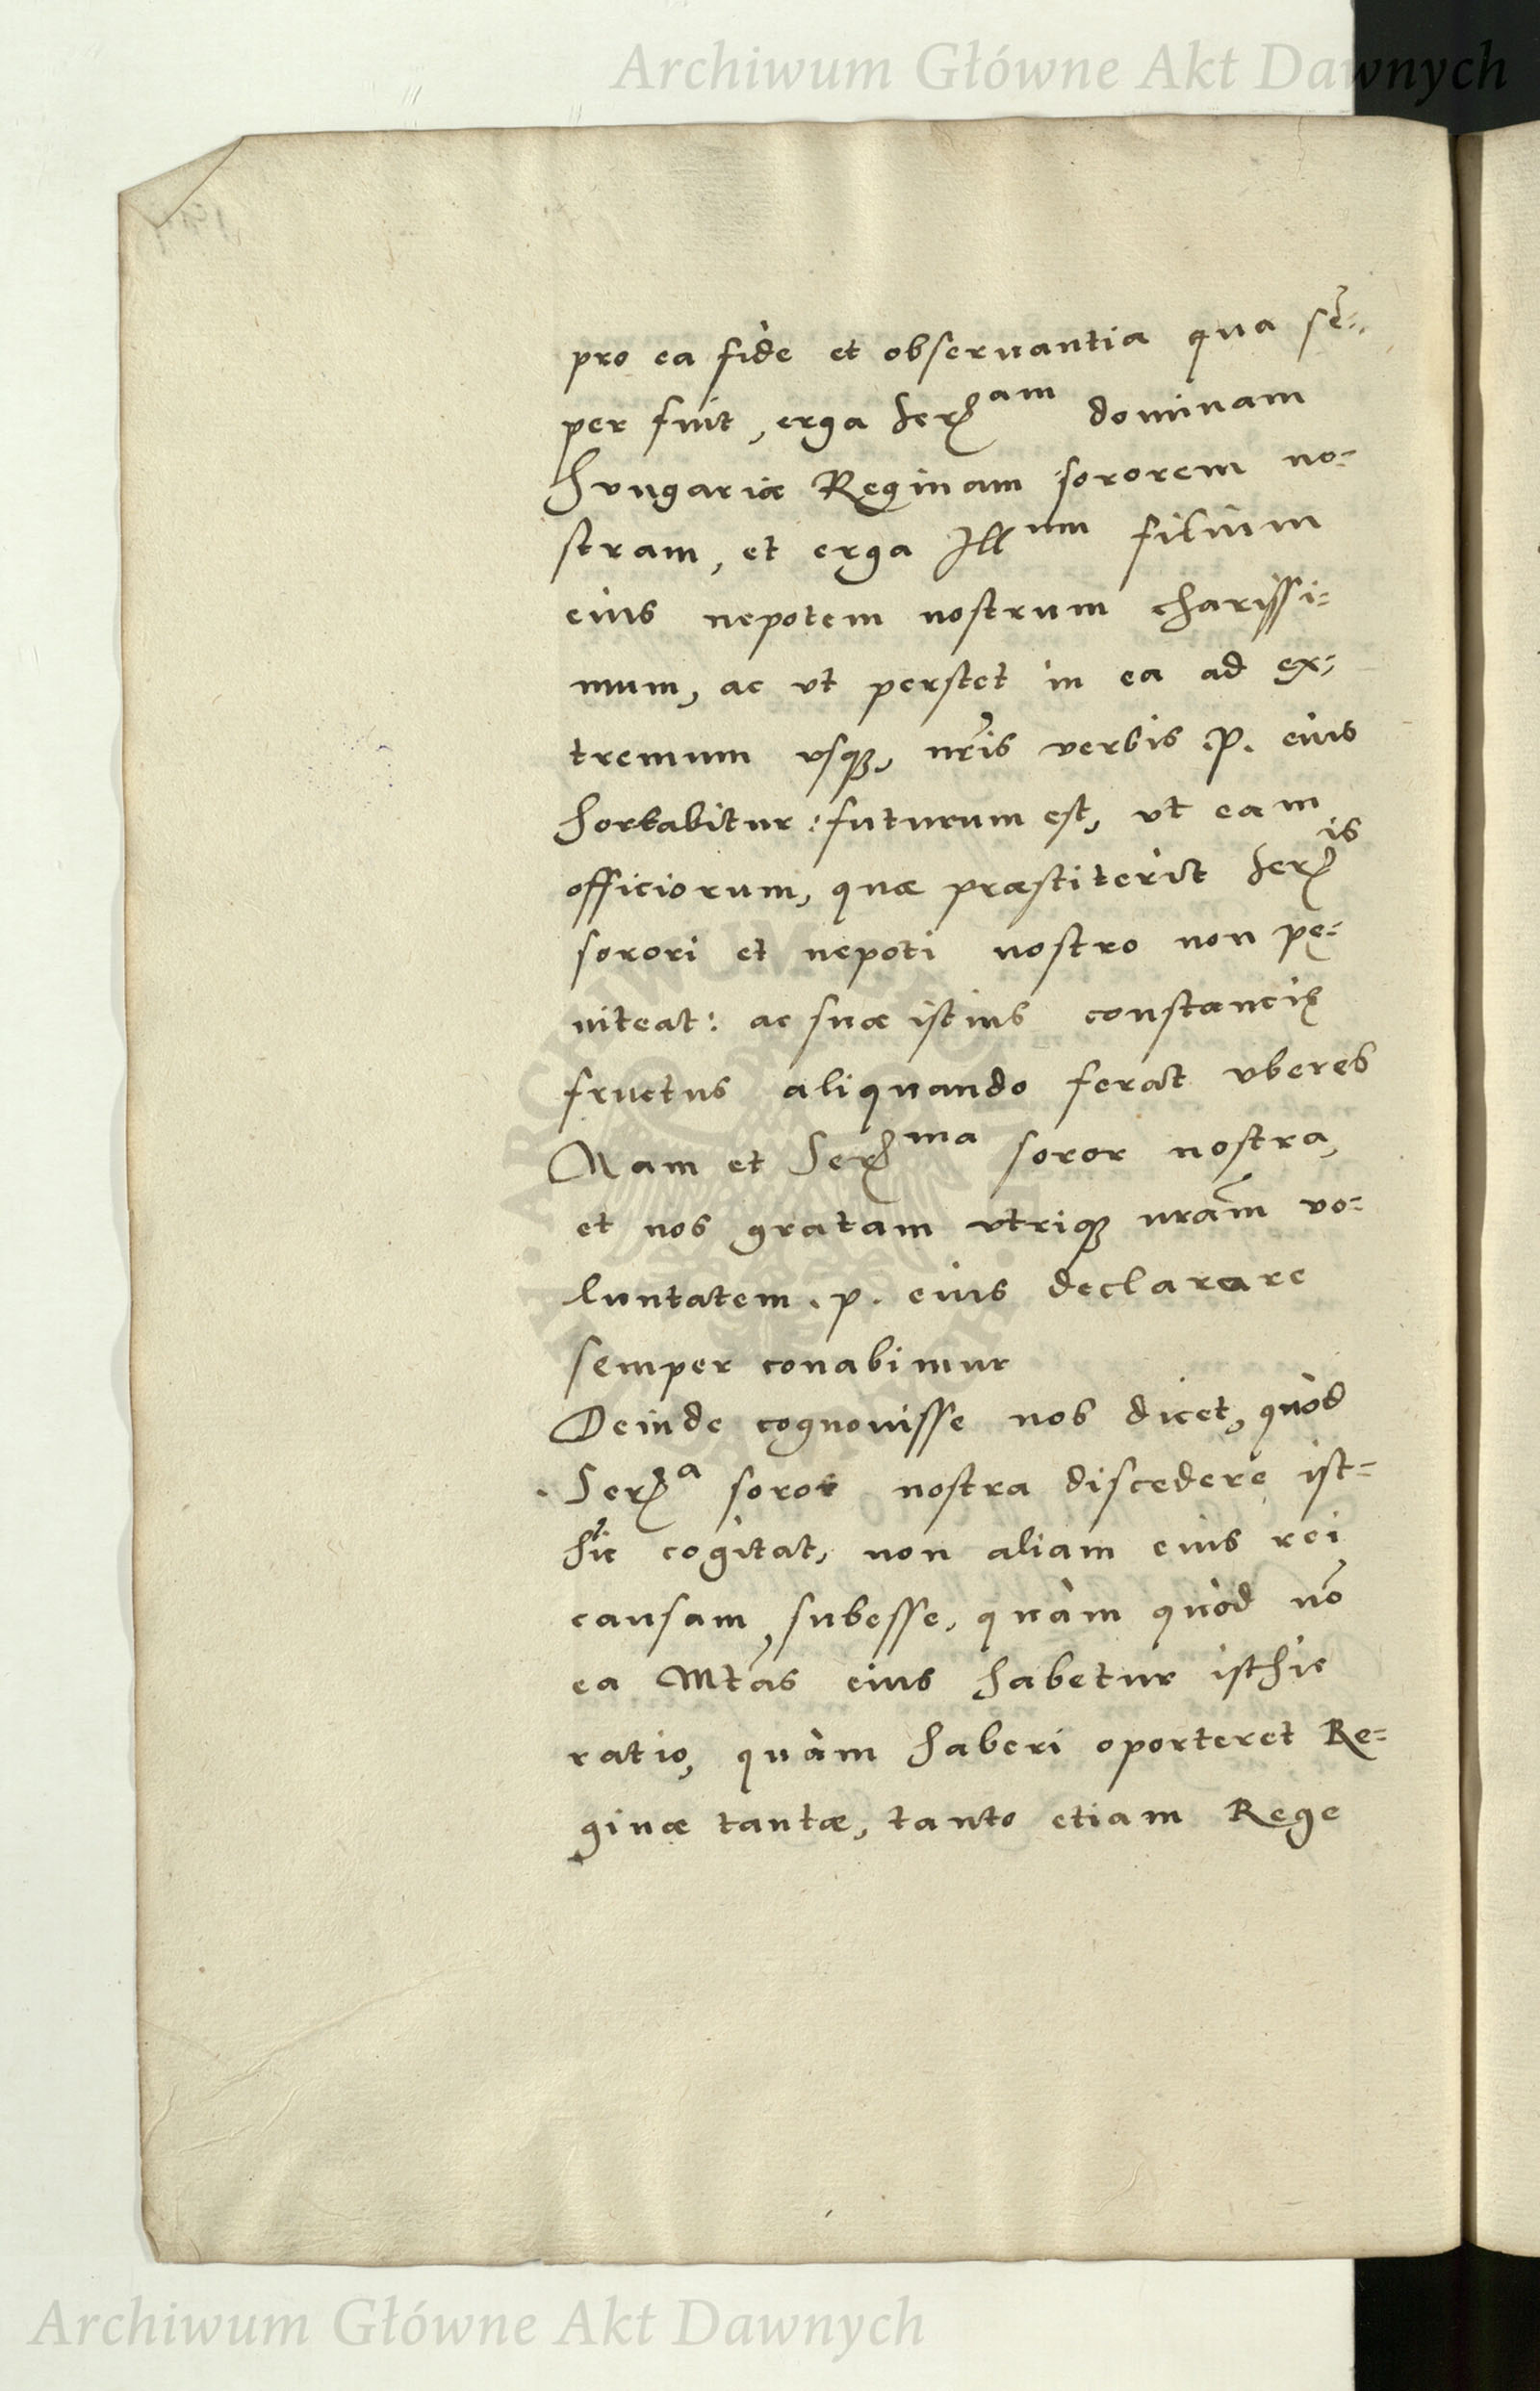 Archiwum Główne Akt Dawnych
pro ea fide et obseruantia qua sē-
per fuit, erga Ser^am dominam
Hungariæ Reginam sororem no-
stram, et erga Ill^um filium
eius nepotem nostrum charissi-
mum, ac vt perstet in ea ad ex-
tremum vsq3, nr̃is verbis .p. eius
hortabitur: futurum est, vt eam
officiorum, quæ præstiterit Ser^is
sorori et nepoti nostro non pę-
niteat: ac suæ istius constanciæ
fructus aliquando ferat vberes
Nam et Ser^ma soror nostra,
et nos gratam vtriq3 nrãm vo-
luntatem .p. eius declarare
semper conabimur
Deinde cognouisse nos dicet, quòd
Ser^a soror nostra discedere ist-
hic cogitat, non aliam eius rei
causam subesse, quàm quòd nõ
ea Mtãs eius habetur isthic
ratio, quàm haberi oporteret Re-
ginæ tantæ, tanto etiam Rege
Archiwum Główne Akt Dawnych